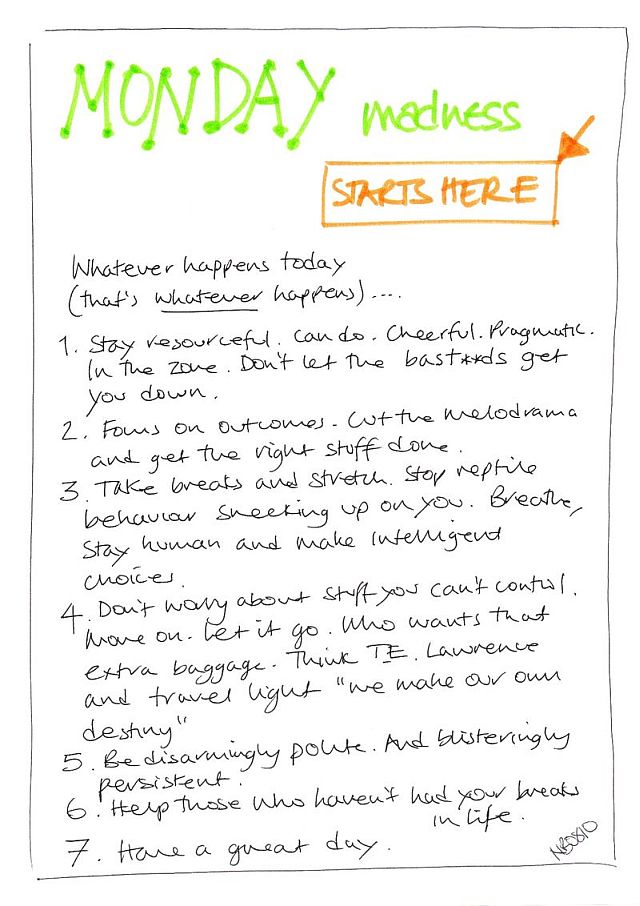 MONDAY madness
STARTS HERE
Whatever happens today
(that's whatever happens)....
1. Stay resourceful. Can do. Cheerful. Pragmatic.
In the zone. Don't let the bast**ds get
you down.
2. Focus on outcomes. Cut the melodrama
and get the right stuff done.
3. Take breaks and stretch. Stop reptile
behaviour sneeking up on you. Breathe,
stay human and make intelligent
choices.
4. Don't worry about stuff you can't control.
Move on. Let it go. Who wants that
extra baggage. Think TE. Lawrence
and travel light "we make our own
destiny"
5. Be disarmingly polite. And blisteringly
persistent.
6. Help those who haven't had your breaks
in life.
7. Have a great day.
NB0810